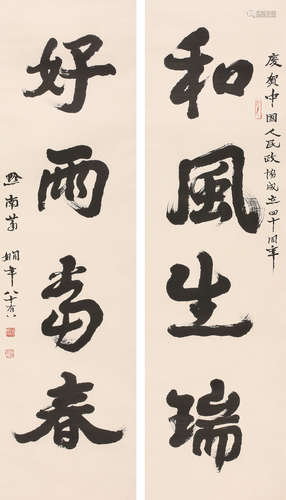 慶賀中國人民政協成立四十周年
和風生瑞
好雨當春
黔南蕭嫻年八十有八